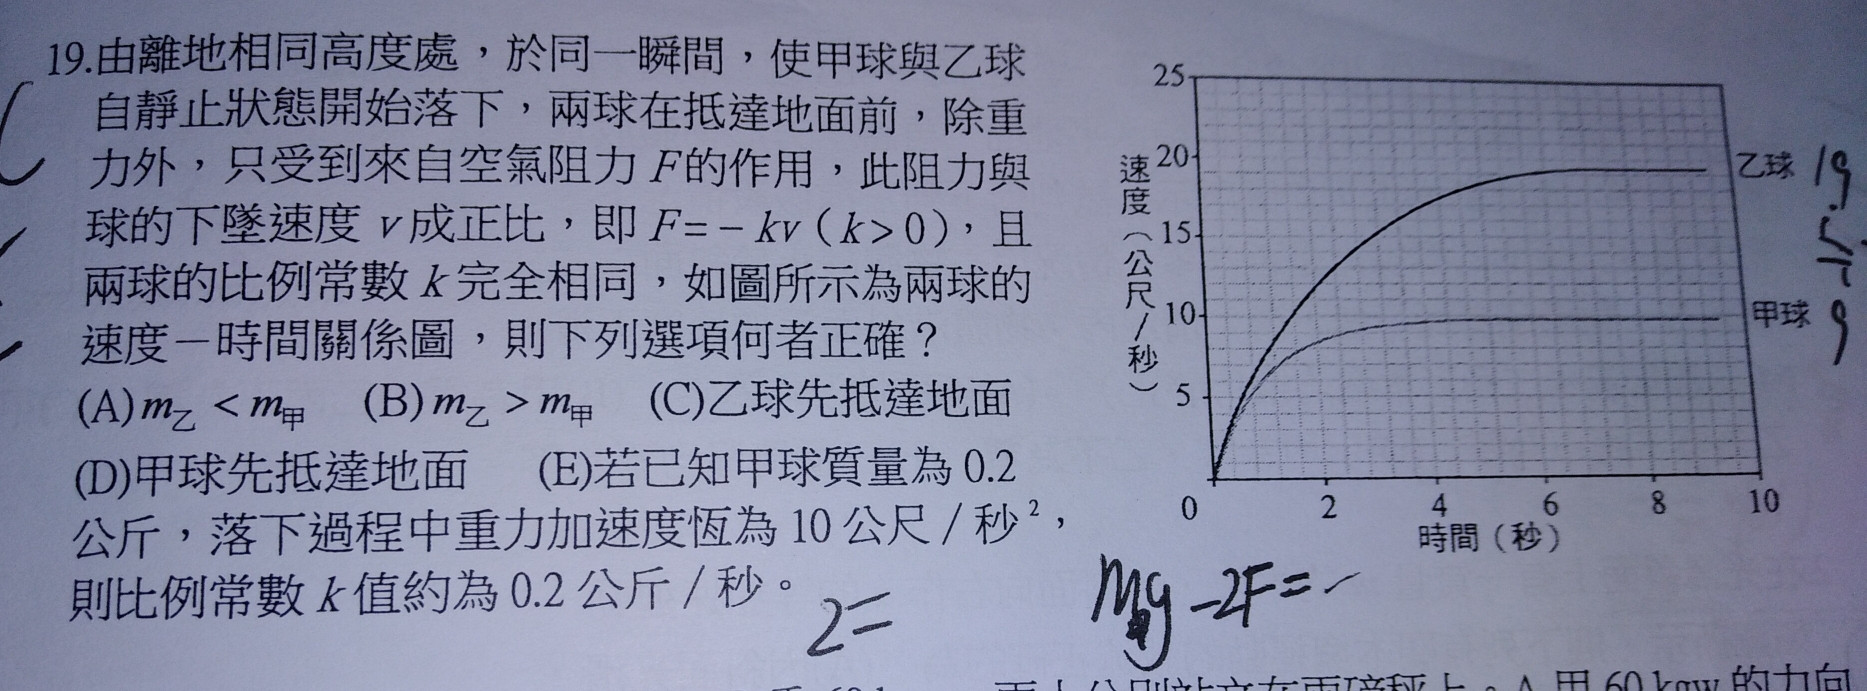 19.由離地相同高度處，於同一瞬間，使甲球與乙球
自靜止狀態開始落下，兩球在抵達地面前，除重
力外，只受到來自空氣阻力 F的作用，此阻力與
球的下墜速度 v 成正比，即 F= − kv（k>0），且
兩球的比例常數 k 完全相同，如圖所示為兩球的
速度－時間關係圖，則下列選項何者正確？
(A) m乙 < m甲 (B) m乙 > m甲 (C)乙球先抵達地面
(D)甲球先抵達地面 (E)若已知甲球質量為 0.2
公斤，落下過程中重力加速度恆為 10 公尺／秒²，
則比例常數 k 值約為 0.2 公斤／秒。
25
20
15
10
5
0
2
4
6
8
10
速度（公尺／秒）
時間（秒）
乙球
甲球
19.
9
2=
Mg −2F=